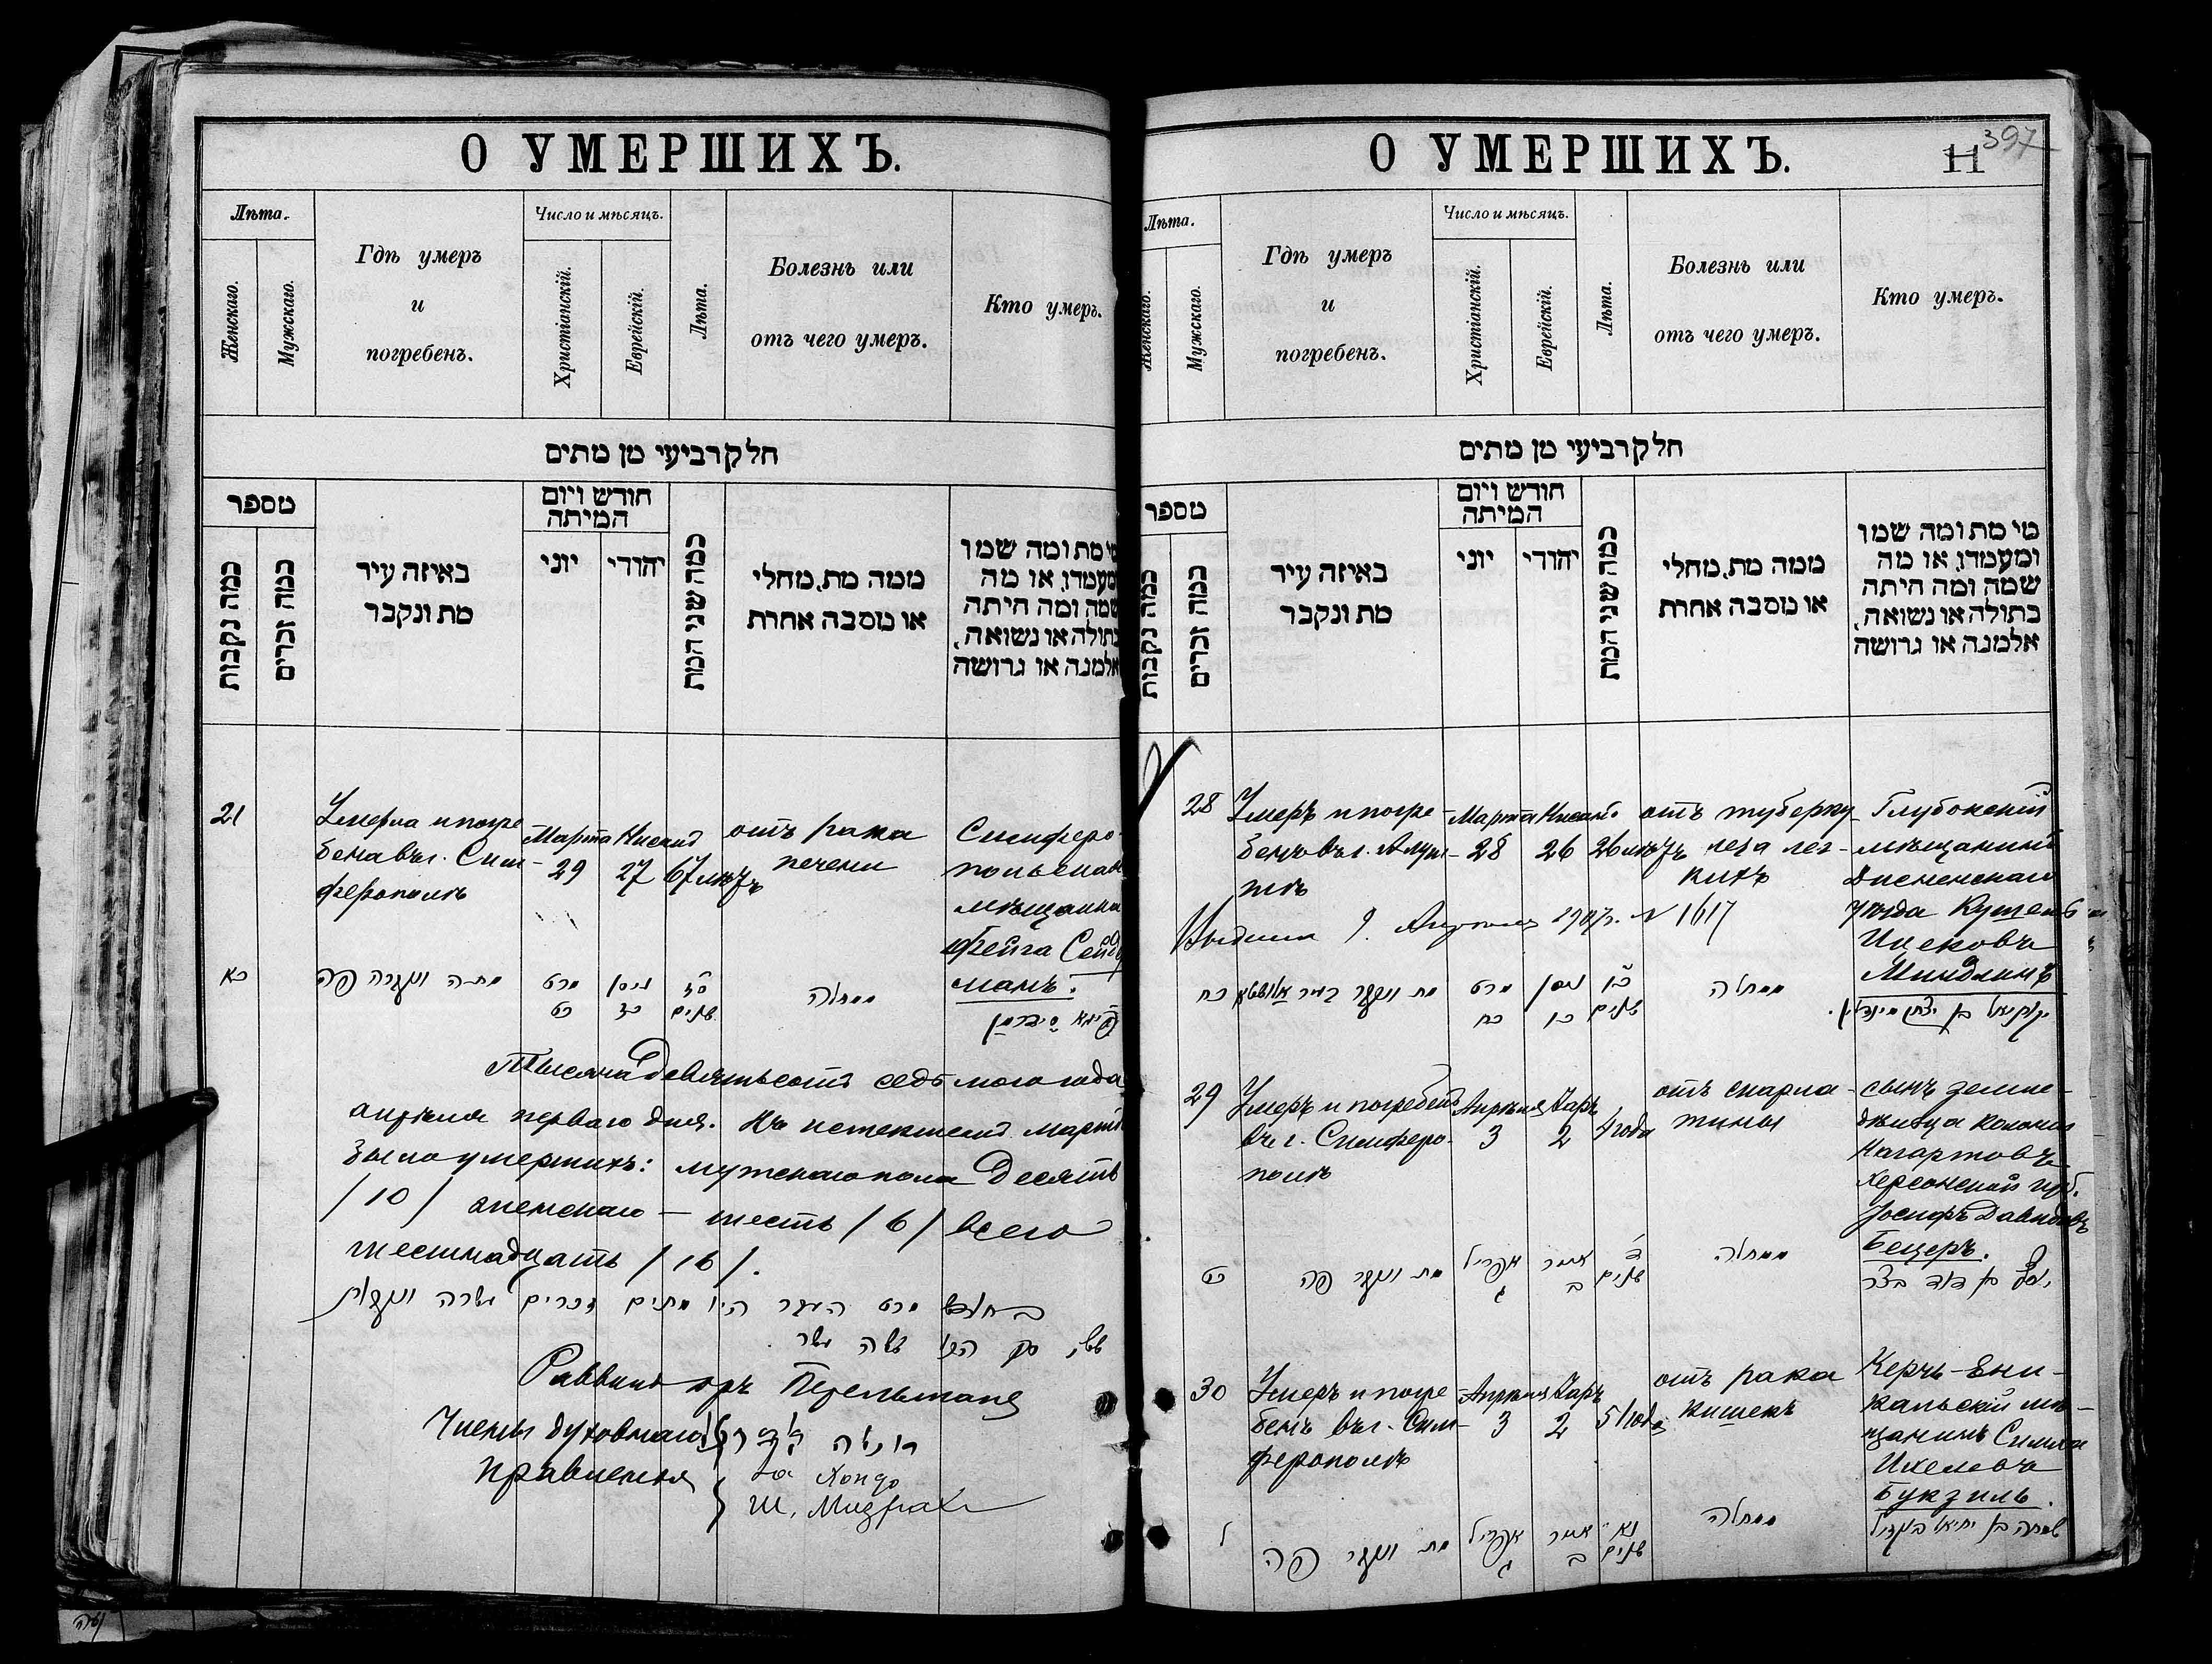 О УМЕРШИХЪ.
Лѣта.
Женскаго.
Мужскаго.
Гдѣ умеръ
и
погребенъ.
Число и мѣсяцъ.
Христіанскій.
Еврейскій.
Лѣта.
Болезнь или
отъ чего умеръ.
Кто умеръ.
חלק רביעי מן מתים
מספר
כמה נקבות
כמה זכרים
באיזה עיר
מת ונקבר
חודש ויום
המיתה
יוני
יהודי
כמה שני המת
ממה מת, מחלי
או מסבה אחרת
מי מת ומה שמו
ומעמדו, או מה
שמה ומה היתה
בתולה או נשואה,
אלמנה או גרושה
21
Умерла и погре
бена въ г. Сим-
ферополѣ
Марта
29
Нисанъ
27
67 лѣтъ
отъ рака
печени
Симферо-
польская
мѣщанка
Фейга
манъ.
כא
מתה ונקברה פה
מרט
כט
ניסן
כז
סז
שנים
ממחלה
Тысяча девятьсотъ седьмого года
апрѣля перваго дня. Въ истекшемъ мартѣ
было умершихъ: мужскаго пола десять
/10/ женскаго — шесть /6/ всего
шестнадцать /16/.
בחודש מרט העבר היו מתים זכרים עשרה ונקבות
שש, סך הכל ששה עשר.
Раввинъ Перельманъ
Члены духовнаго
правленія
за Хондо
Ш. Мизрахи
О УМЕРШИХЪ.
11 397
Лѣта.
Женскаго.
Мужскаго.
Гдѣ умеръ
и
погребенъ.
Число и мѣсяцъ.
Христіанскій.
Еврейскій.
Лѣта.
Болезнь или
отъ чего умеръ.
Кто умеръ.
חלק רביעי מן מתים
מספר
כמה נקבות
כמה זכרים
באיזה עיר
מת ונקבר
חודש ויום
המיתה
יוני
יהודי
כמה שני המת
ממה מת, מחלי
או מסבה אחרת
מי מת ומה שמו
ומעמדו, או מה
שמה ומה היתה
בתולה או נשואה,
אלמנה או גרושה
28
Умеръ и погре-
бенъ въ г. Алуш-
тѣ
Марта
28
Нисанъ
26
26 лѣтъ
отъ туберку-
леза лег-
кихъ
Глубокскій
мѣщанинъ
Дисненскаго
уѣзда
Ицековъ
Миндлинъ
1907г. № 1617
כח
מת ונקבר בעיר אלושטא
מרט
כח
ניסן
כו
כו
שנים
ממחלה
בן יצחק מינדלין.
29
Умеръ и погребенъ
въ г. Симферо-
полѣ
Апрѣля
3
Іаръ
2
4 года
отъ скарла-
тины
сынъ земле-
дѣльца колоніи
Нагартовъ
Херсонской губ.
Іосифъ Давидовъ
Бецеръ.
כט
מת ונקבר פה
אפריל
ג
אייר
ב
ד
שנים
ממחלה
יוסף בן דוד בצר
30
Умеръ и погре-
бенъ въ г. Сим-
ферополѣ
Апрѣля
3
Іаръ
2
51 года
отъ рака
кишекъ
Керчь-Ени-
кальскій мѣ-
щанинъ Симха
Ихелевъ
Букзиль.
ל
מת ונקבר פה
אפריל
ג
אייר
ב
נא
שנים
ממחלה
שמחה בן יחיאל בוקזיל